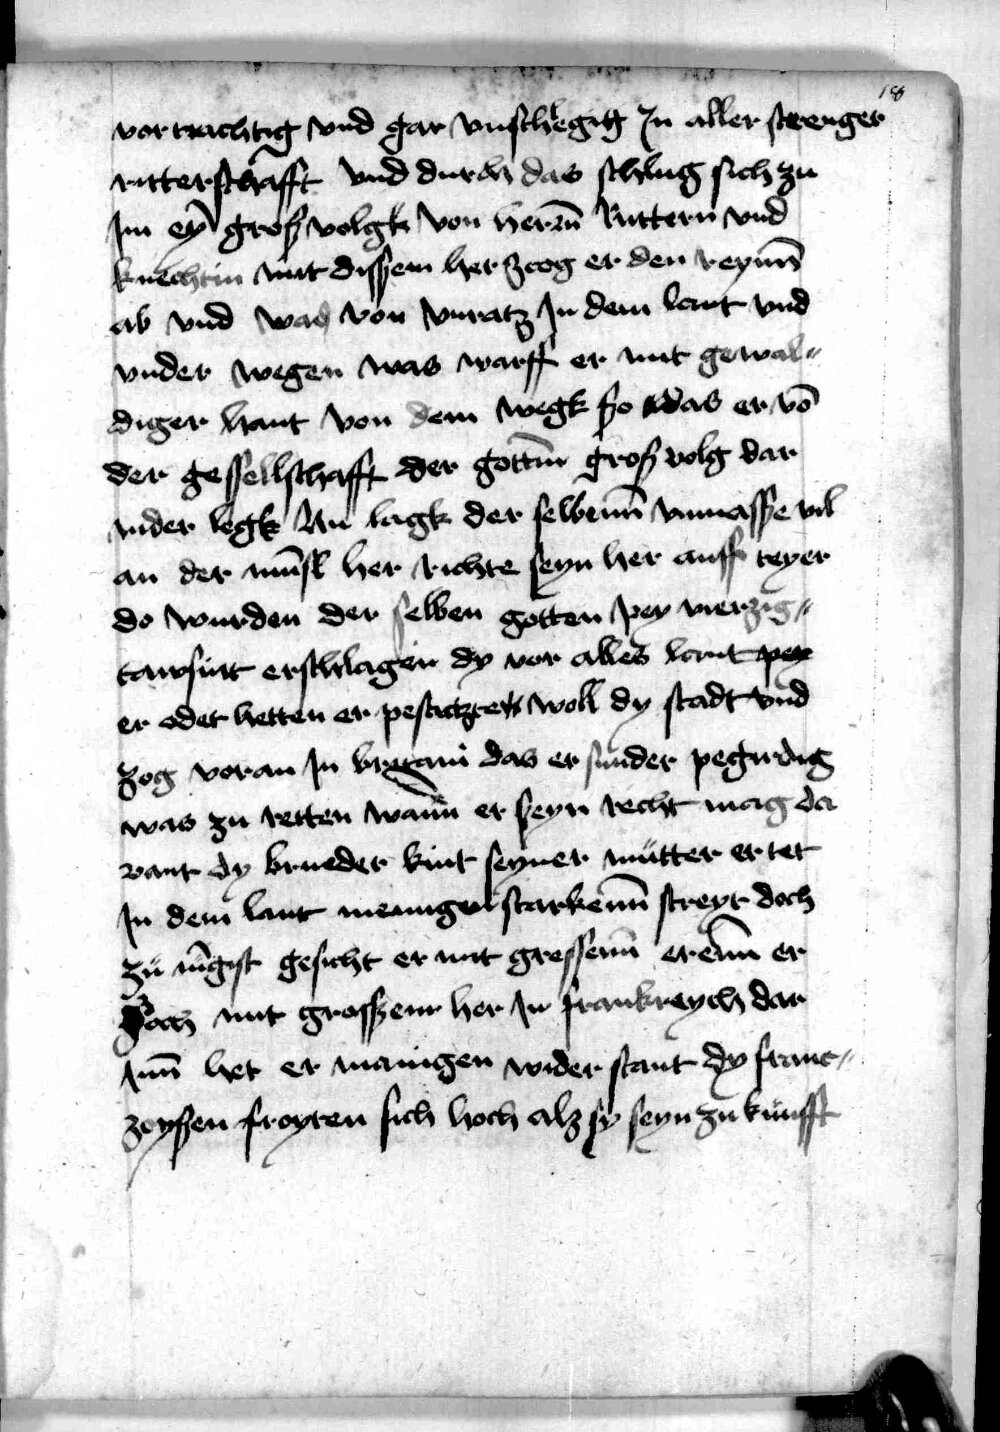 188
vortrachtig vnd gar vnschlegig Jn aller strenger
ritterschafft vnd durch das schlug sich zu
Jm ey groß volgk von herrn̄ Rittern vnd
knechtin mit dissem her zcog er den reynn̄
ab vnd was von vnratz Jn dem lant vnd
vnder wegen was warff er mit gewal=
diger hant von dem wegk ßo das er vō
der gessellschafft der gottin̄ groß volg dar
nider legk Nu lagk der selbenn̄ vnmasse vil
an der mūsl her richte seyn her auff teyer
do wurden der selben gotten pey vierzig=
tawsint erschlagen dy vor alles lant
er odet hetten er pesatzte woll dy stadt vnd
zog voran Jn das er sunder pegirdig
was zu retten wann̄ er seyn recht mag da
vant dy brueder kint seyner mütter er tet
Jn dem lant mennigen starkenn̄ streyt doch
zü gesicht er mit grossenn̄ erenn̄ er
zoch mit grossem her Jn franckreych dar
Jnn̄ het er manigen wider stant dy franc=
zoyßen froyten sich hoch alz sy seyn zu kunfft